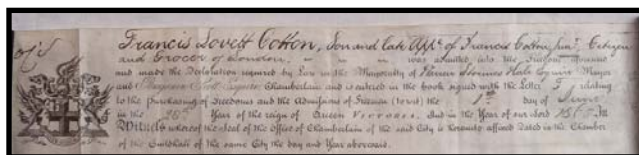 Francis Lovett Cotton, Son and late App. of Francis Cotton, Citizen
and Grocer of London, was admitted into the Freedom aforesaid
and made the Declaration required by Law in the Mayoralty of Warren Stormes Hale Esquire Mayor
and Benjamin Scott Esquire Chamberlain and is entered in the book signed with the Letter relating
to the Purchasing of Freedoms and the Admissions of Freemen (to wit) the 1st day of June
in the 28th Year of the reign of Queen Victoria, And in the Year of our Lord 1865 In
Witness whereof the Seal of the Office of Chamberlain of the said City is hereunto affixed Dated in the Chamber
of the Guildhall of the same City the day and Year abovesaid.